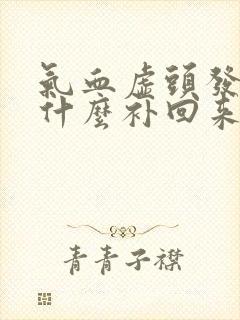 氣血虛頭發
什麼补回来
青青子襟